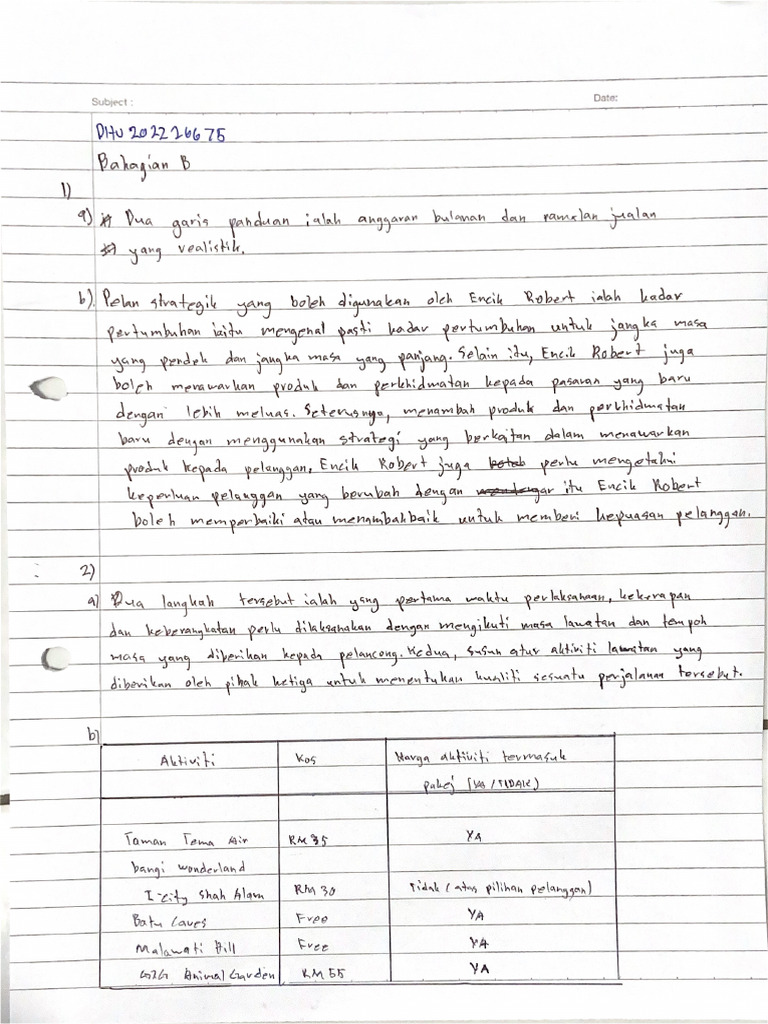 Subject :
Date:
DITU 2022 26675
Bahagian B
1)
a) Dua garis panduan ialah anggaran bulanan dan ramalan jualan
yang realistik.
b) Pelan strategik yang boleh digunakan oleh Encik Robert ialah kadar
pertumbuhan iaitu mengenal pasti kadar pertumbuhan untuk jangka masa
yang pendek dan jangka masa yang panjang. Selain itu, Encik Robert juga
boleh menawarkan produk dan perkhidmatan kepada pasaran yang baru
dengan lebih meluas. Seterusnya, menambah produk dan perkhidmatan
baru dengan menggunakan strategi yang berkaitan dalam menawarkan
produk kepada pelanggan, Encik Robert juga perlu mengetahui
keperluan pelanggan yang berubah dengan itu Encik Robert
boleh memperbaiki atau menambahbaik untuk memberi kepuasan pelanggan.
2)
a) Dua langkah tersebut ialah yang pertama waktu perlaksanaan, kekerapan
dan keberangkatan perlu dilaksanakan dengan mengikuti masa lawatan dan tempoh
masa yang diberikan kepada pelancong. Kedua, susun atur aktiviti lawatan yang
diberikan oleh pihak ketiga untuk menentukan kualiti sesuatu perjalanan tersebut.
b)
Aktiviti Kos Harga aktiviti termasuk
pakej (YA / TIDAK)
Taman Tema Air RM 35 YA
bangi wonderland
I-city Shah Alam RM 30 Tidak (atas pilihan pelanggan)
Batu Caves Free YA
Malawati Hill Free YA
G2G Animal Garden RM 55 YA